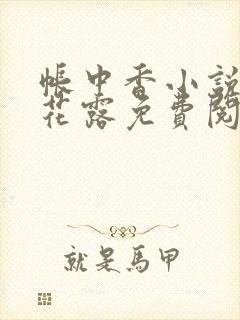 帳中香小說
花露免費閱
就是馬甲